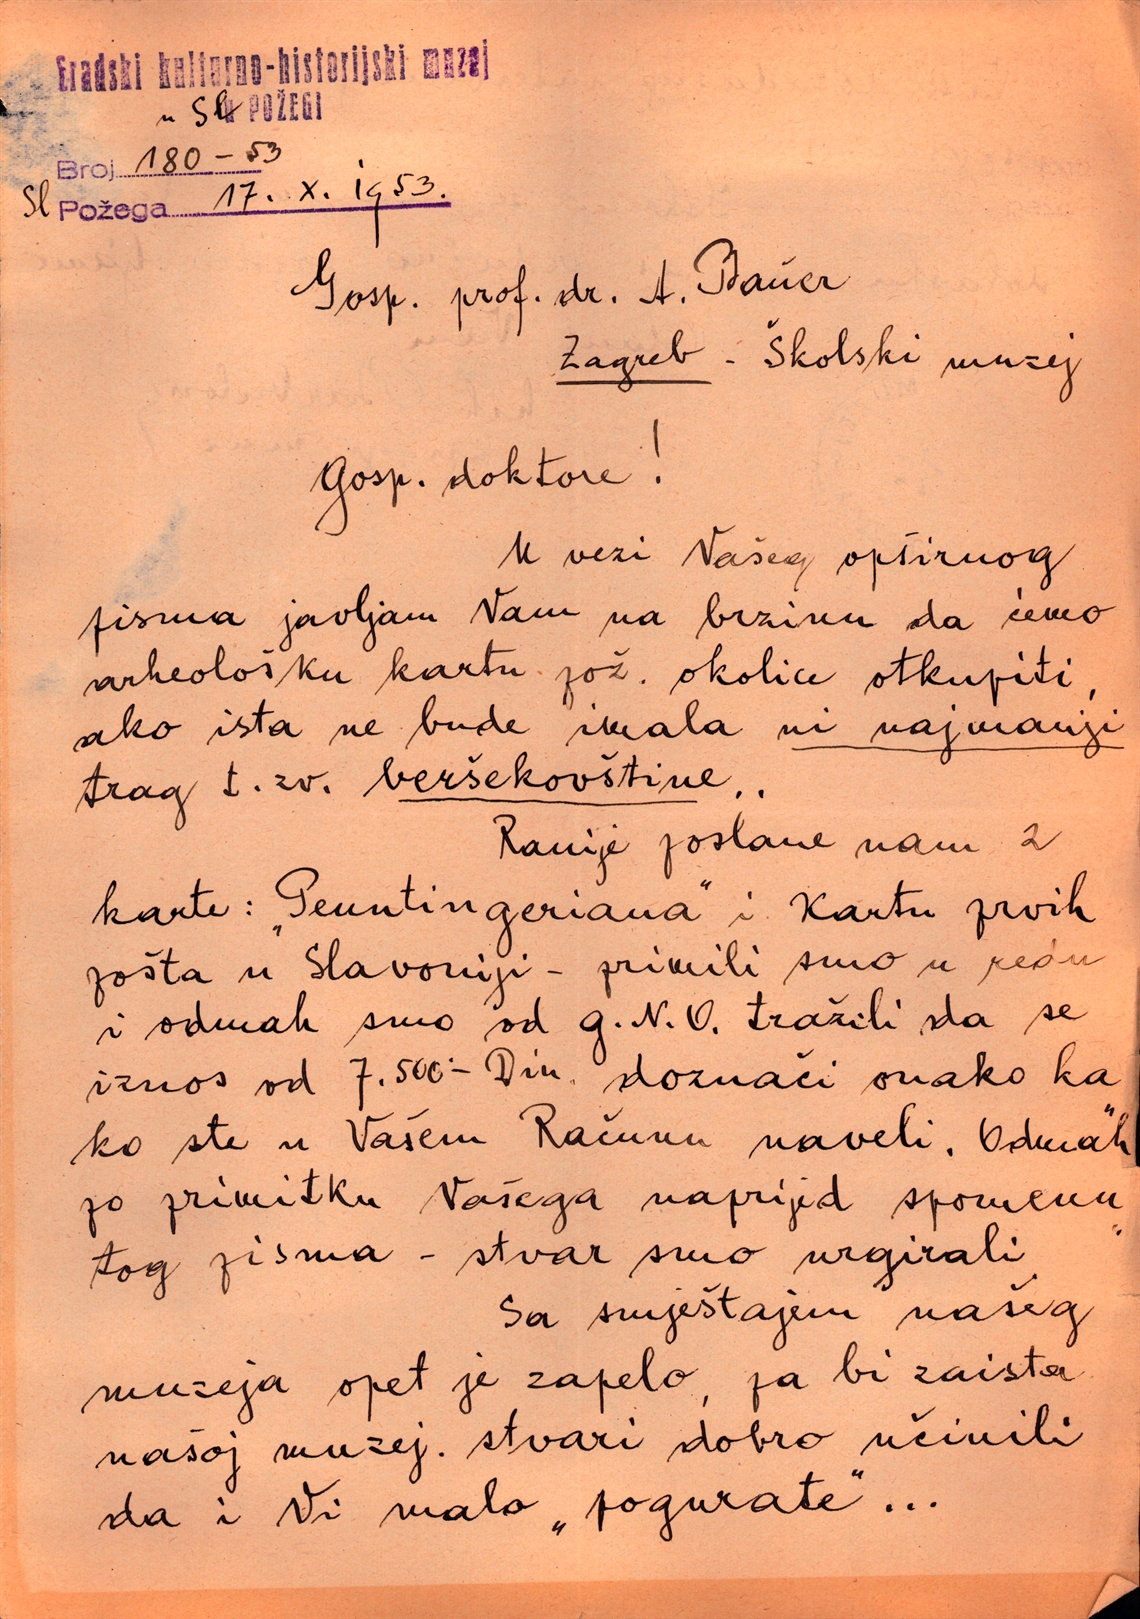 Gradski kulturno-historijski muzej
u Sl. POŽEGI
Broj 180-53
Sl Požega 17. X. 1953.
Gosp. prof. dr. A. Bauer
Zagreb - Školski muzej
Gosp. doktore!
U vezi Vašeg opširnog
pisma javljam Vam na brzinu da ćemo
arheološku kartu pož. okolice otkupiti,
ako ista ne bude imala ni najmanji
trag t. zv. beršekovštine..
Ranije poslane nam 2
karte: „Peuntingeriana" i Kartu prvih
pošta u Slavoniji - primili smo u redu
i odmah smo od g. N. O. tražili da se
iznos od 7.500.- Din. doznači onako ka
ko ste u Vašem Računu naveli. Odmah
po primitku Vašega naprijed spomenu
tog pisma - stvar smo urgirali
Sa smještajem našeg
muzeja opet je zapelo, pa bi zaista
našoj muzej. stvari dobro učinili
da i Vi malo „pogurate"...